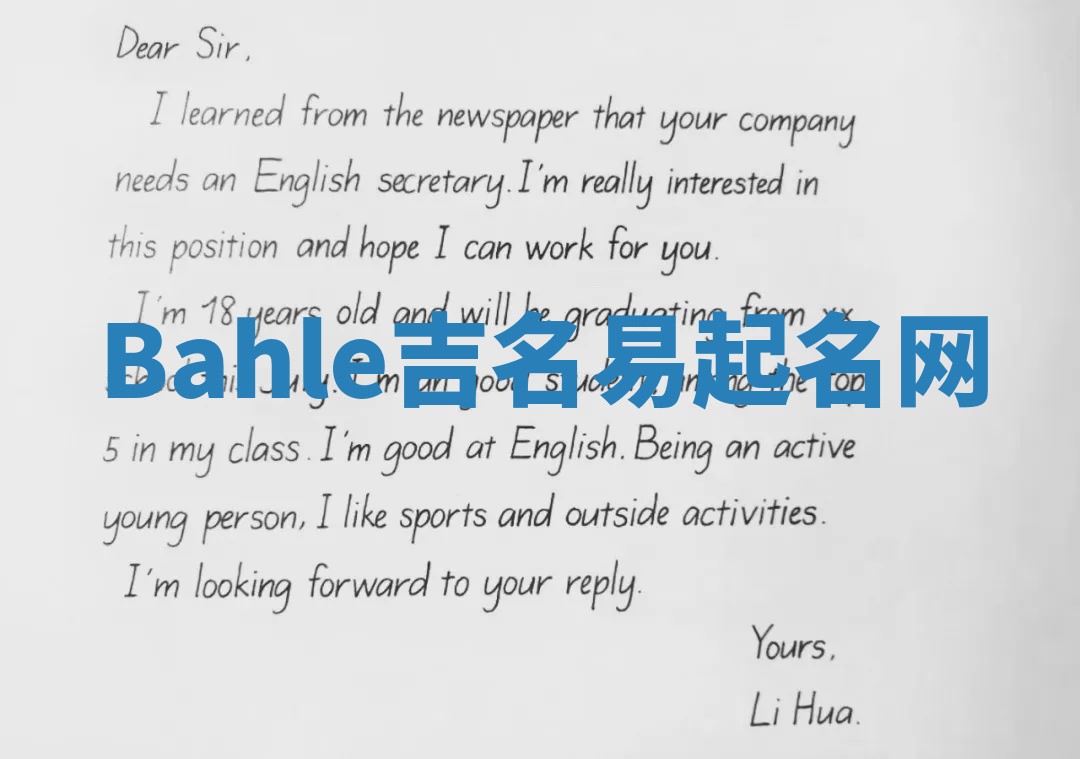 Dear Sir,
I learned from the newspaper that your company
needs an English secretary. I'm really interested in
this position and hope I can work for you.
I'm 18 years old and will be graduating from xx
Bahle吉名易起名网
school this July. I'm an good student, among the top
5 in my class. I'm good at English. Being an active
young person, I like sports and outside activities.
I'm looking forward to your reply.
Yours,
Li Hua.